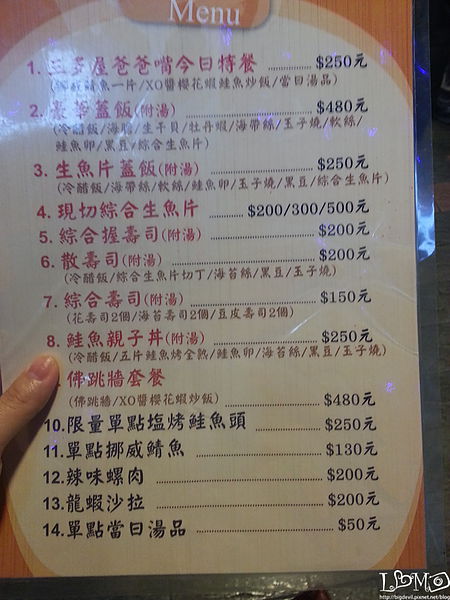 Menu
1. 三多屋爸爸嘴今日特餐 $250元
(挪威鯖魚一片/XO醬櫻花蝦鮭魚炒飯/當日湯品)
2. 豪華蓋飯(附湯) $480元
(冷醋飯/海膽/生干貝/牡丹蝦/海帶絲/玉子燒/軟絲/
鮭魚卵/黑豆/綜合生魚片)
3. 生魚片蓋飯(附湯) $250元
(冷醋飯/海帶絲/軟絲/鮭魚卵/玉子燒/黑豆/綜合生魚片)
4. 現切綜合生魚片 $200/300/500元
5. 綜合握壽司(附湯) $200元
6. 散壽司(附湯) $200元
(冷醋飯/綜合生魚片切丁/海苔絲/黑豆/玉子燒)
7. 綜合壽司(附湯) $150元
(花壽司2個/海苔壽司2個/豆皮壽司2個)
8. 鮭魚親子丼(附湯) $250元
(冷醋飯/五片鮭魚烤全熟/鮭魚卵/海苔絲/黑豆/玉子燒)
佛跳牆套餐
(佛跳牆/XO醬櫻花蝦炒飯) $480元
10.限量單點塩烤鮭魚頭 $250元
11.單點挪威鯖魚 $130元
12.辣味螺肉 $200元
13.龍蝦沙拉 $200元
14.單點當日湯品 $50元
LBMO
http://bigdevil.pixnet.net/blog